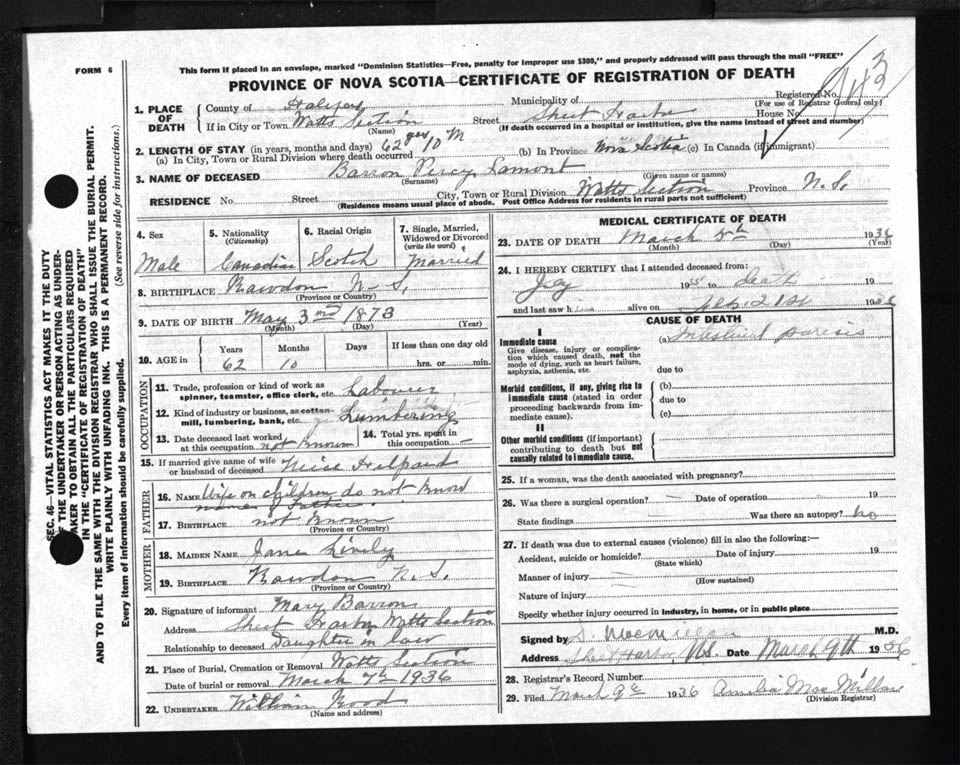 FORM 6
This form if placed in an envelope, marked "Dominion Statistics—Free, penalty for improper use $300," and properly addressed will pass through the mail "FREE"
PROVINCE OF NOVA SCOTIA—CERTIFICATE OF REGISTRATION OF DEATH
Registered No.
(For use of Registrar General only)
1. PLACE OF DEATH
County of Halifax Municipality of
If in City or Town Watts Section Street Sheet Harbor House No.
(Name) (If death occurred in a hospital or institution, give the name instead of street and number)
2. LENGTH OF STAY (in years, months and days) 62 yrs 10 M
(a) In City, Town or Rural Division where death occurred (b) In Province Nova Scotia (c) In Canada (if immigrant)
3. NAME OF DECEASED Barron Percy Lamont
(Surname) (Given name or names)
RESIDENCE No. Street City, Town or Rural Division Watts Section Province N.S.
(Residence means usual place of abode. Post Office Address for residents in rural parts not sufficient)
4. Sex Male
5. Nationality (Citizenship) Canadian
6. Racial Origin Scotch
7. Single, Married, Widowed or Divorced (write the word) Married
8. BIRTHPLACE Rawdon N.S.
(Province or Country)
9. DATE OF BIRTH May 3rd 1873
(Month) (Day) (Year)
10. AGE in Years 62 Months 10 Days If less than one day old hrs. or min.
OCCUPATION
11. Trade, profession or kind of work as spinner, teamster, office clerk, etc. Labourer
12. Kind of industry or business, as cotton-mill, lumbering, bank, etc. Lumbering
13. Date deceased last worked at this occupation not known
14. Total yrs. spent in this occupation
15. If married give name of wife or husband of deceased
FATHER
16. NAME Wife or children do not know
names of Father.
17. BIRTHPLACE not known
(Province or Country)
MOTHER
18. MAIDEN NAME Jane Lively
19. BIRTHPLACE Rawdon N.S.
(Province or Country)
20. Signature of informant Mary Barron
Address Sheet Harbor Watts Section
Relationship to deceased Daughter in law
21. Place of Burial, Cremation or Removal Watts Section
Date of burial or removal March 7th 1936
22. UNDERTAKER William
(Name and address)
MEDICAL CERTIFICATE OF DEATH
23. DATE OF DEATH March 5th 1936
(Month) (Day) (Year)
24. I HEREBY CERTIFY that I attended deceased from:
1935 to death 19
and last saw him alive on Feb 21st 1936
CAUSE OF DEATH
I
Immediate cause
Give disease, injury or complication which caused death, not the mode of dying, such as heart failure, asphyxia, asthenia, etc.
(a) Intestinal paresis
due to
Morbid conditions, if any, giving rise to immediate cause (stated in order proceeding backwards from immediate cause).
(b)
due to
(c)
II
Other morbid conditions (if important) contributing to death but not causally related to immediate cause.
25. If a woman, was the death associated with pregnancy?
26. Was there a surgical operation? Date of operation 19
State findings Was there an autopsy? no
27. If death was due to external causes (violence) fill in also the following:—
Accident, suicide or homicide? Date of injury 19
(State which)
Manner of injury
(How sustained)
Nature of injury
Specify whether injury occurred in industry, in home, or in public place
Signed by D. MacMillan M.D.
Address Sheet Harbor, N.S. Date March 9th 1936
28. Registrar's Record Number
29. Filed March 9th 1936 Amelia MacMillan
(Division Registrar)
SEC. 46—VITAL STATISTICS ACT MAKES IT THE DUTY
OF THE UNDERTAKER OR PERSON ACTING AS UNDER-
TAKER TO OBTAIN ALL THE PARTICULARS REQUIRED
IN THE "CERTIFICATE OF REGISTRATION OF DEATH"
AND TO FILE THE SAME WITH THE DIVISION REGISTRAR WHO SHALL ISSUE THE BURIAL PERMIT.
WRITE PLAINLY WITH UNFADING INK. THIS IS A PERMANENT RECORD.
Every item of information should be carefully supplied. (See reverse side for instructions.)